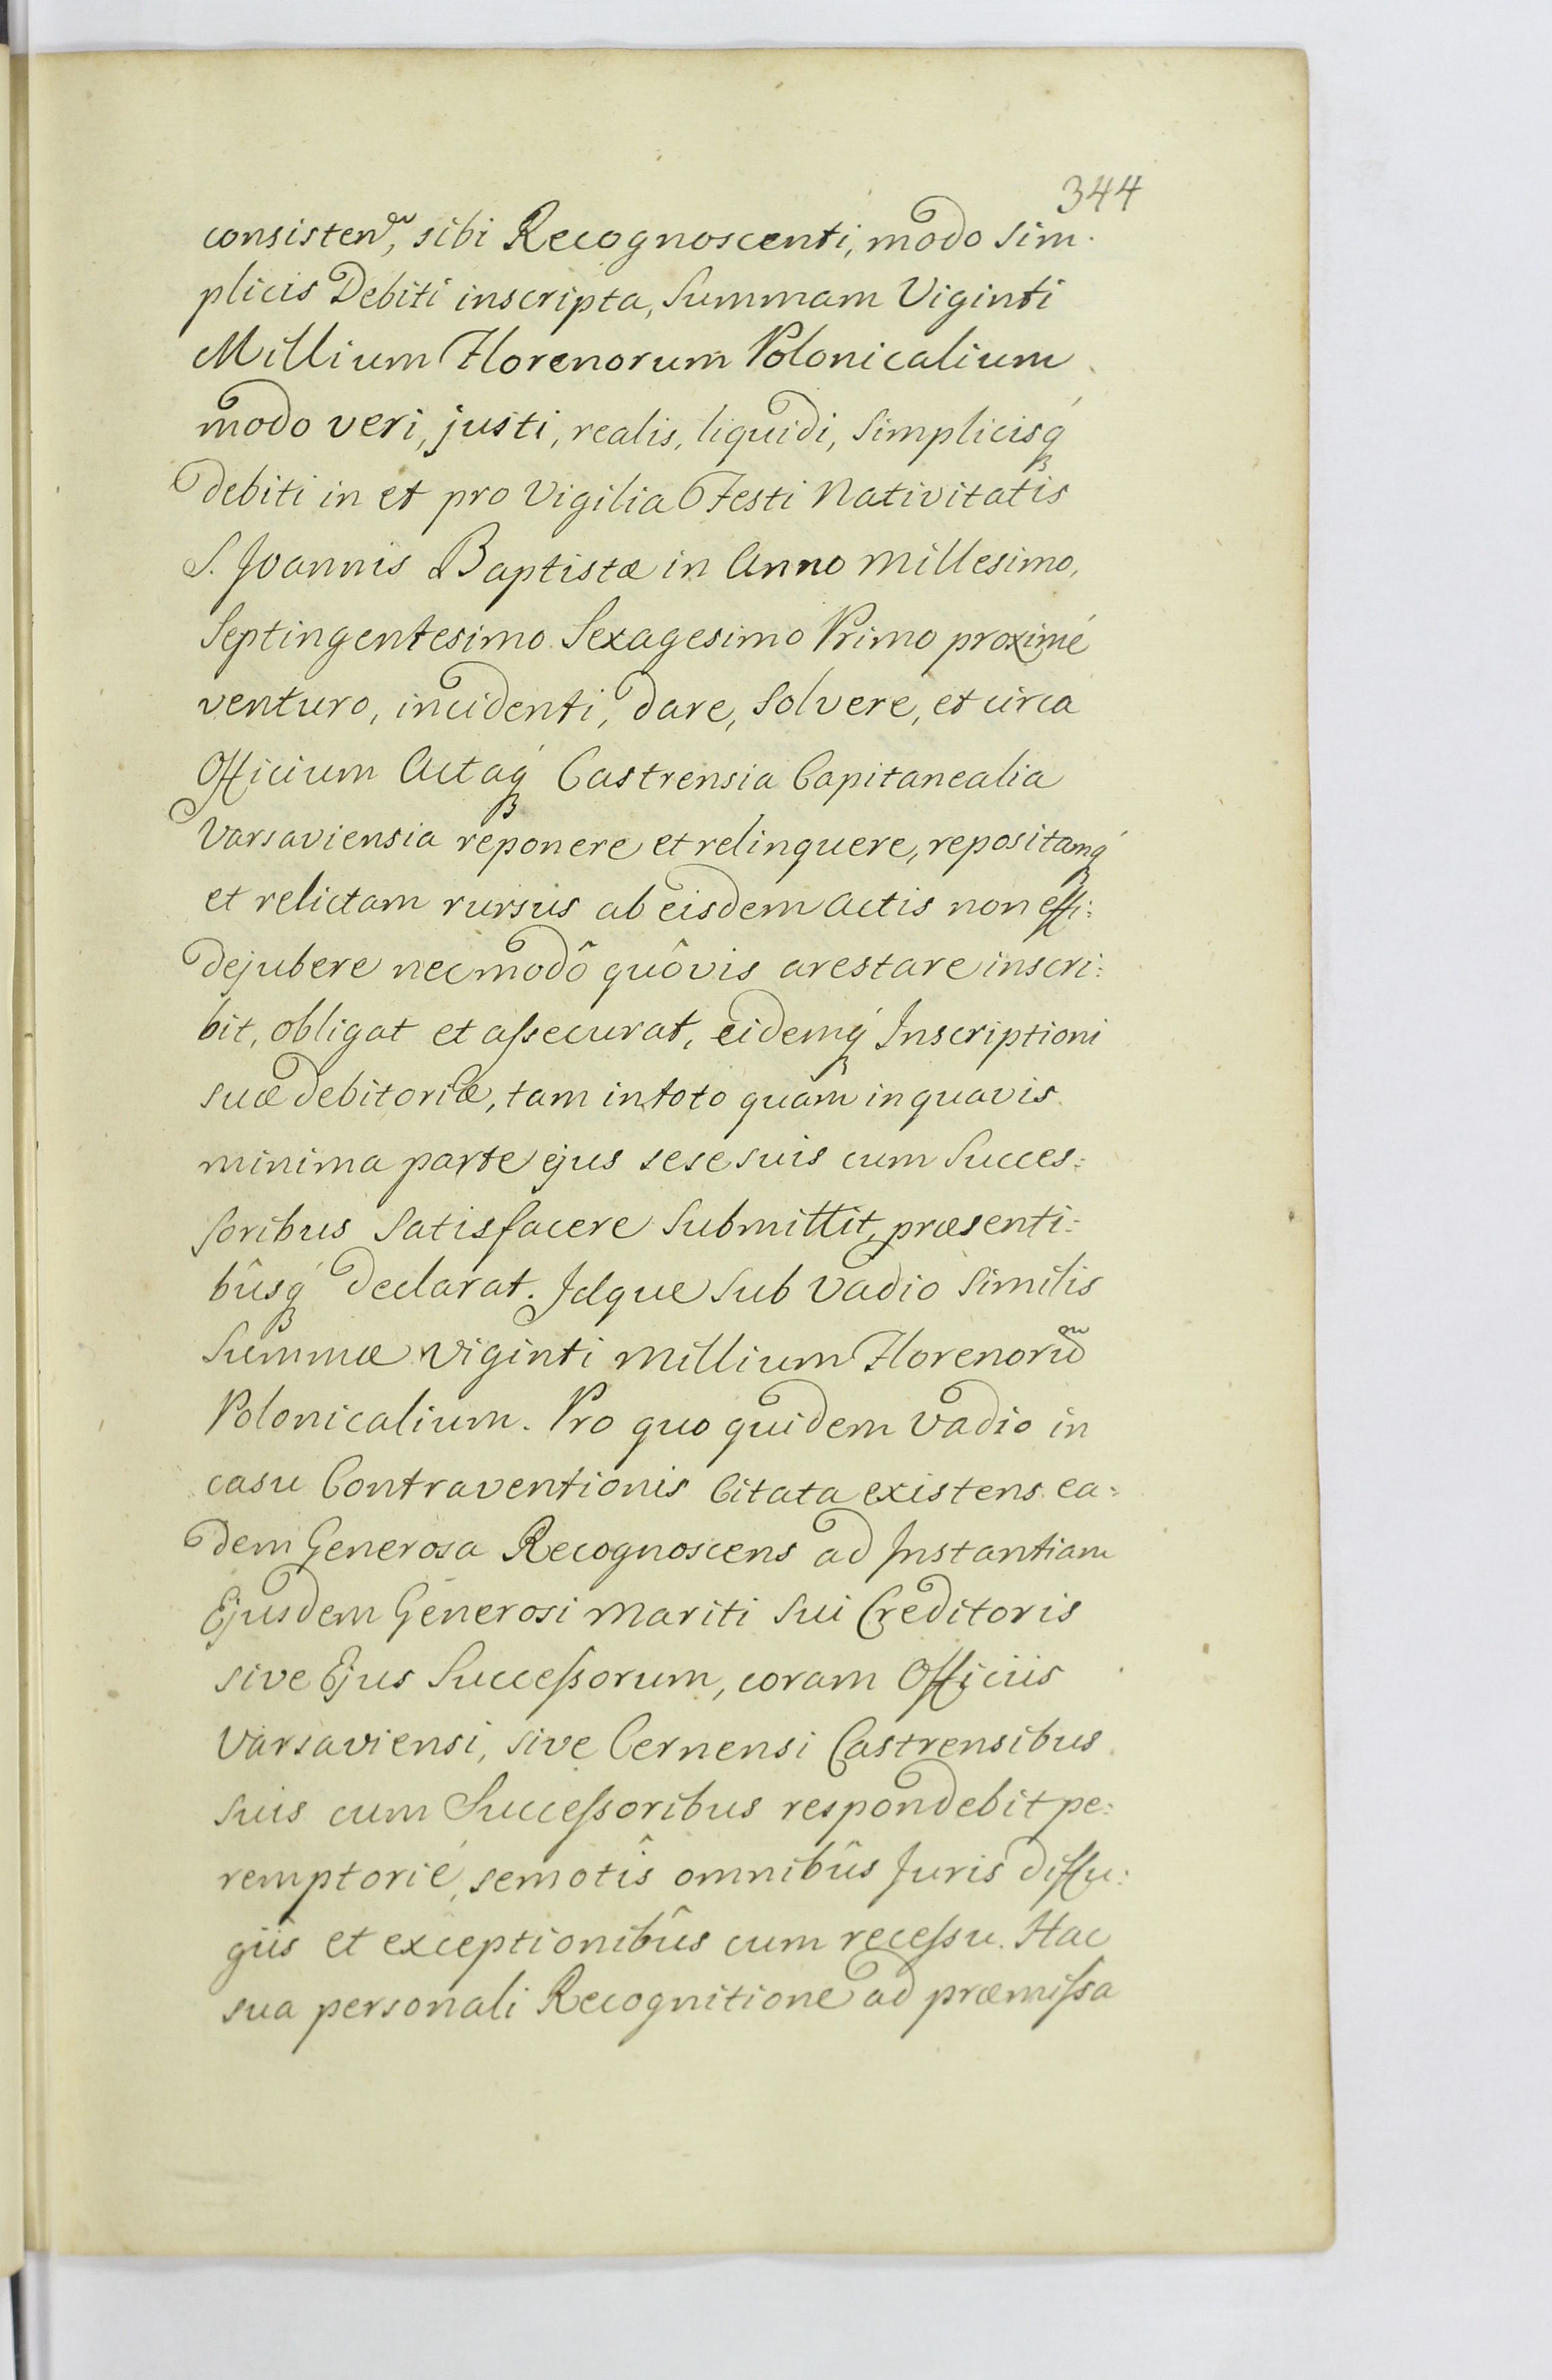 344
consisten, sibi Recognoscenti, modo Sim-
plicis Debiti inscripta, Summam Viginti
Millium Florenorum Polonicalium
modo veri, justi, realis, liquidi, Simplicisq́
debiti in et pro Vigilia Festi Nativitatis
S. Joannis Baptistæ in Anno Millesimo,
Septingentesimo Sexagesimo Primo proximé
venturo, incidenti, dare, Solvere, et circa
Officium Actaq́ Castrensia Capitanealia
Varsaviensia reponere et relinquere, repositamq́
et relictam rursus ab eisdem Actis non effi:
dejubere nec modô quôvis arestare inscri:
bit, obligat et aſsecurat, eidemq́ Inscriptioni
suæ debitoriæ, tam in toto quam in quavis
minima parte ejus sese suis cum Succes:
soribus Satisfacere Submittit, præsenti:
bûsq́ declarat. Idque Sub Vadio Similis
Summæ Viginti Millium Florenorũ
Polonicalium. Pro quo quidem Vadio in
casu Contraventionis Citata existens ea:
dem Generosa Recognoscens ad Instantiam
Ejusdem Generosi Mariti Sui Creditoris
sive Ejus Succeſsorum, coram Officiis
Varsaviensi, sive Cernensi Castrensibus
suis cum Succeſsoribus respondebit pe:
remptorié, semotîs omnibûs Juris diffu:
giis et exceptionibûs cum receſsu. Hac
sua personali Recognitione ad præmiſsa